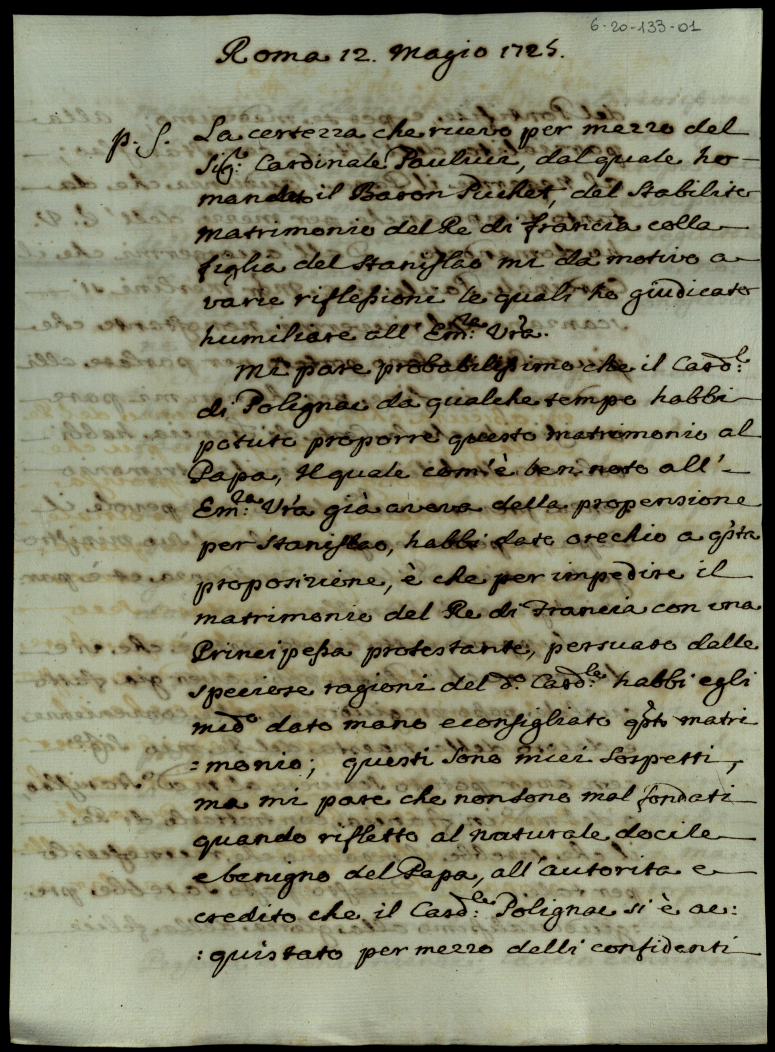 6-20-133-01
Roma 12. Magio 1725.
p. S. La certezza che ricevo per mezzo del
Sig.e Cardinale Paulucci, dal quale ho
mandato il Baron Puchet, del Stabilito
matrimonio del Re di francia colla
figlia del Stanislao mi dà motivo a
varie riflessioni le quali ho giudicato
humiliare all' Em.za Vr̃a.
Mi pare probabilissimo che il Card.l
di Polignac da qualche tempo habbi
potuto proporre questo matrimonio al
Papa, Il quale com'è ben noto all'
Em.za Vr̃a già aveva della propensione
per Stanislao, habbi dato orechio a qsta
proposizione, è che per impedire il
matrimonio del Re di Francia con una
Principessa protestante, persuaso dalle
speciose ragioni del d.o Card.le habbi egli
med.o dato mano e consigliato qsto matri
=monio; questi sono miei sospetti,
ma mi pare che non sono mal fondati
quando rifletto al naturale docile
e benigno del Papa, all'autorita e
credito che il Card.le Polignac si è ac:
:quistato per mezzo delli confidenti